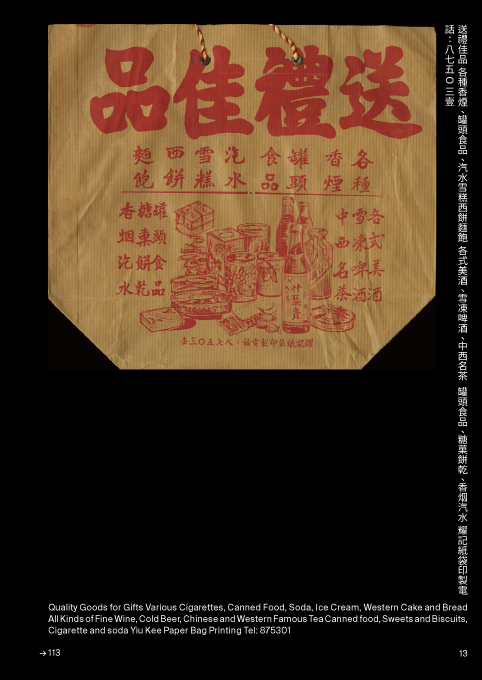 送禮佳品
各種
香煙
罐頭
食品
汽水
雪糕
西餅
麵飽
各式美酒
雪凍啤酒
中西名茶
罐頭食品
糖菓餅乾
香烟汽水
耀記紙袋印製電話：八七五〇三壹
送禮佳品 各種香煙、罐頭食品、汽水雪糕西餅麵飽 各式美酒、雪凍啤酒、中西名茶 罐頭食品、糖菓餅乾、香烟汽水 耀記紙袋印製電
話：八七五〇三壹
Quality Goods for Gifts Various Cigarettes, Canned Food, Soda, Ice Cream, Western Cake and Bread
All Kinds of Fine Wine, Cold Beer, Chinese and Western Famous Tea Canned food, Sweets and Biscuits,
Cigarette and soda Yiu Kee Paper Bag Printing Tel: 875301
→ 113
13